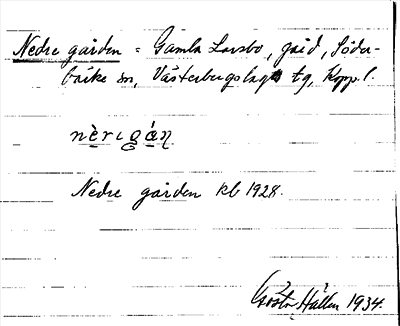 Nedre gården = Gamla Larsbo, gård, Söder-
bärke sn, Västerbergslags tg, Kopp. l.
nèrιgán
Nedre gården kb 1928.
Gösta Hallen 1934.